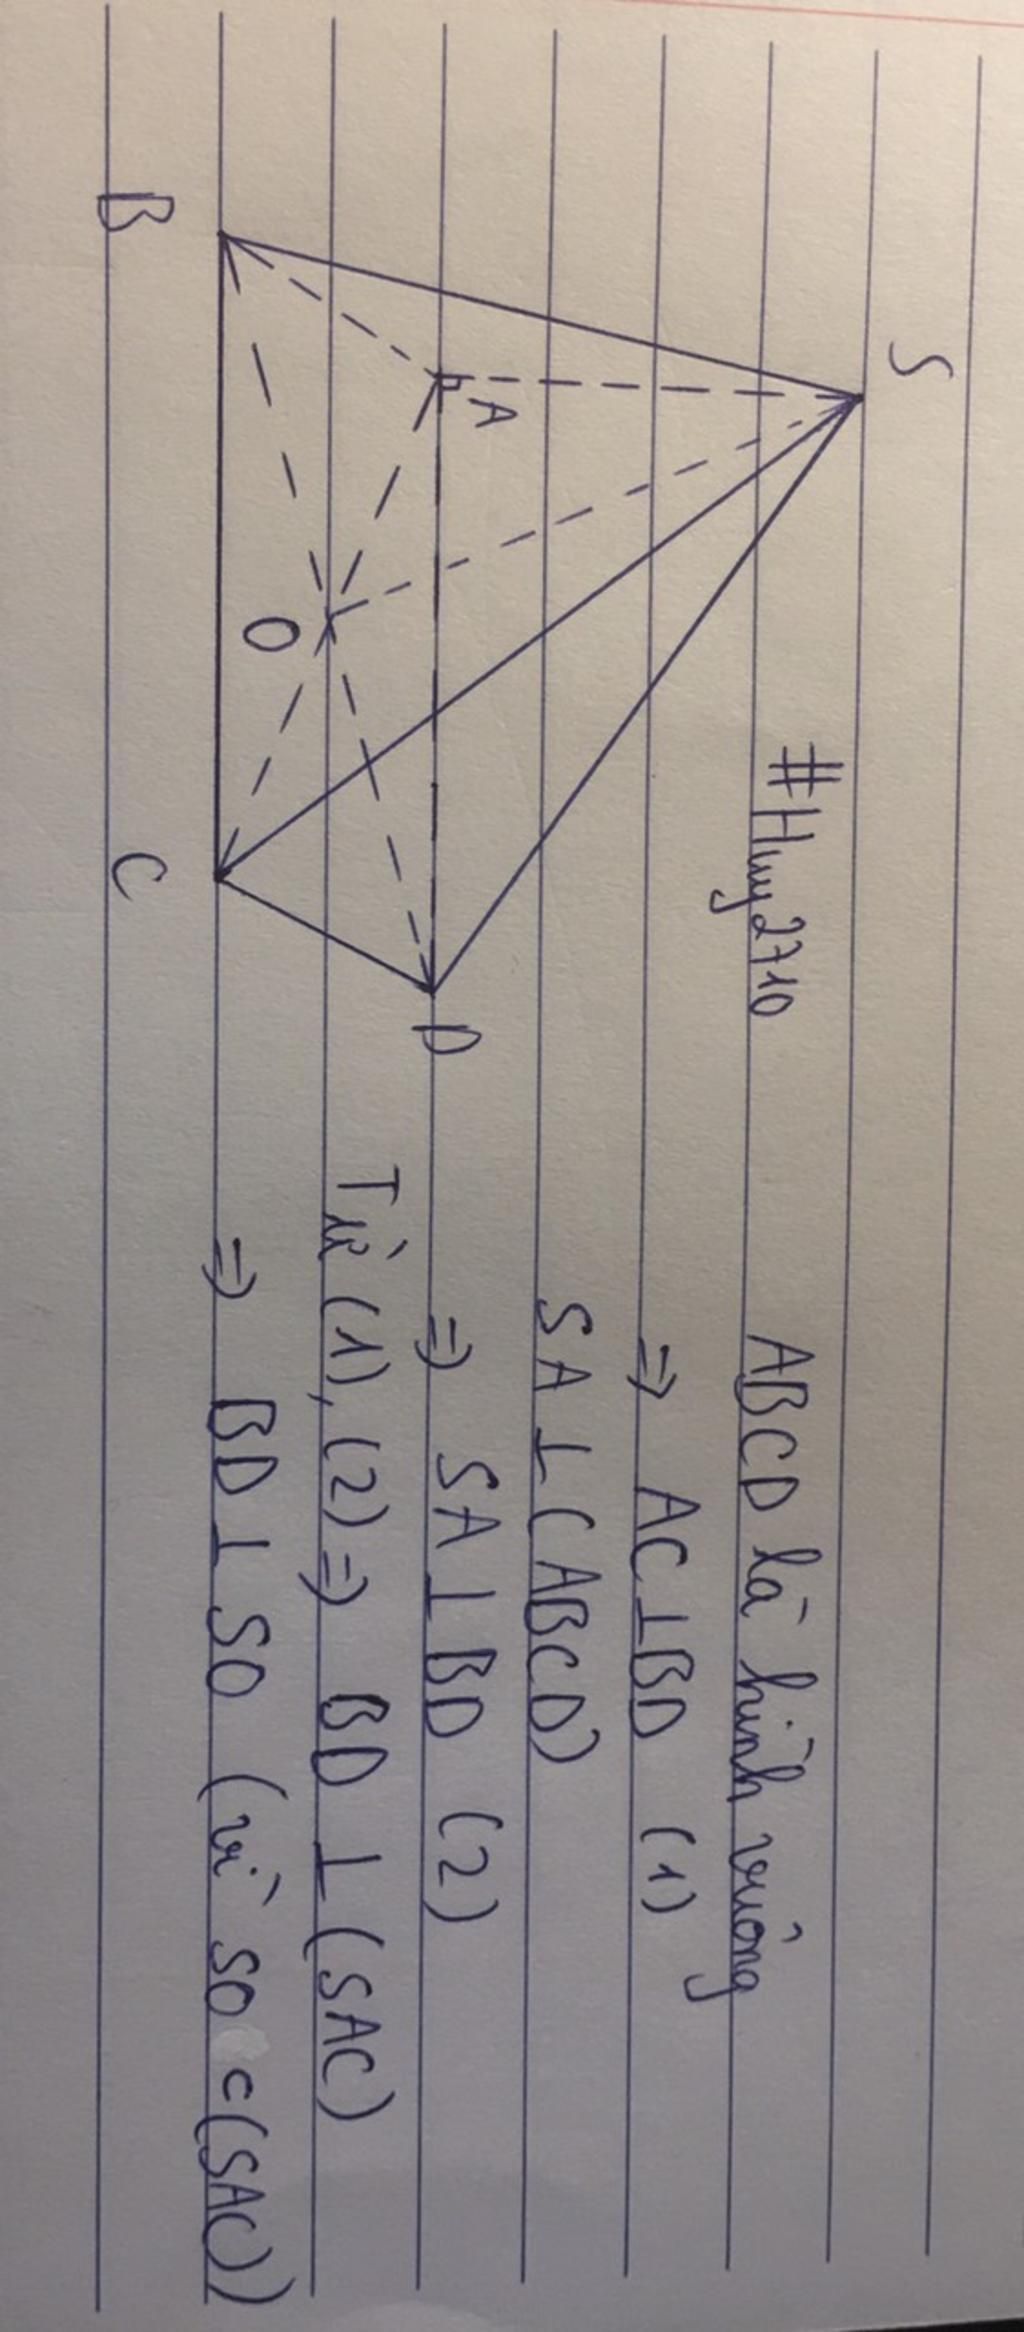 S
#Huy2710
A
B
O
C
D
ABCD là hình vuông
=> AC⊥BD (1)
SA⊥(ABCD)
=> SA⊥BD (2)
Từ (1), (2) => BD ⊥ (SAC)
=> BD ⊥ SO (vì SO ⊂ (SAC))